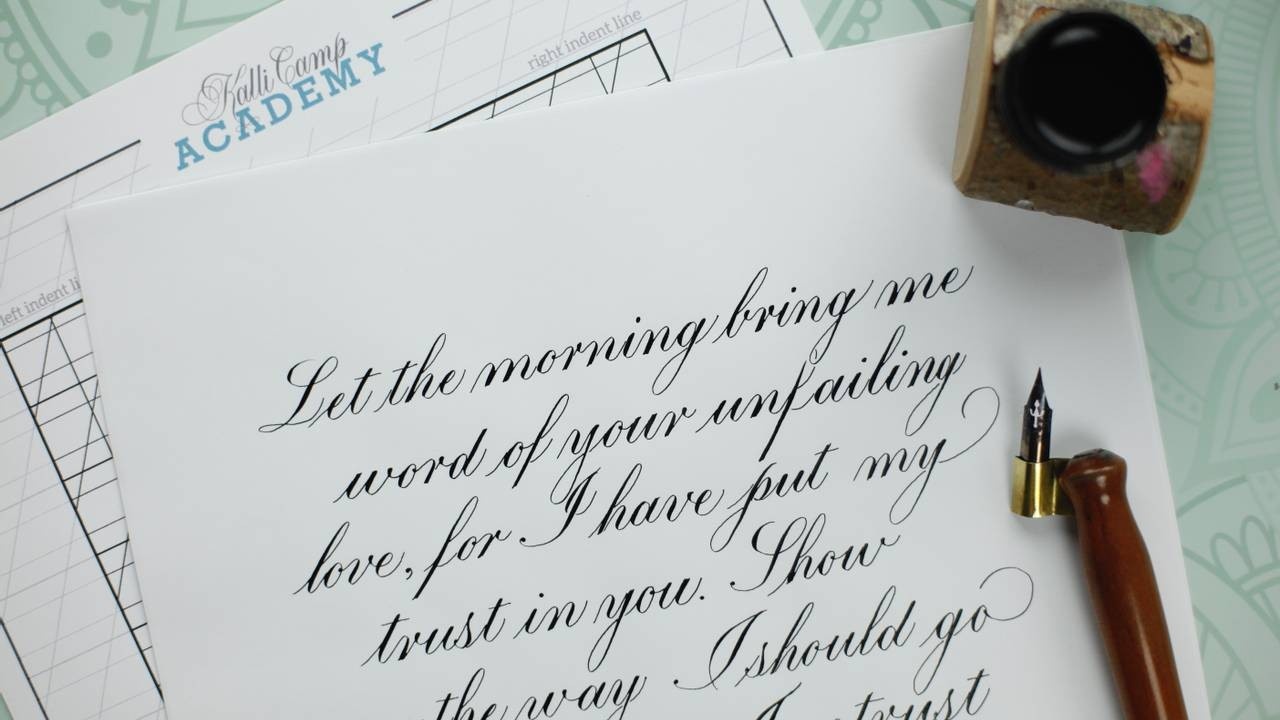 Kalli Camp
ACADEMY
right indent line
left indent li
Let the morning bring me
word of your unfailing
love, for I have put my
trust in you. Show
the way I should go
I trust